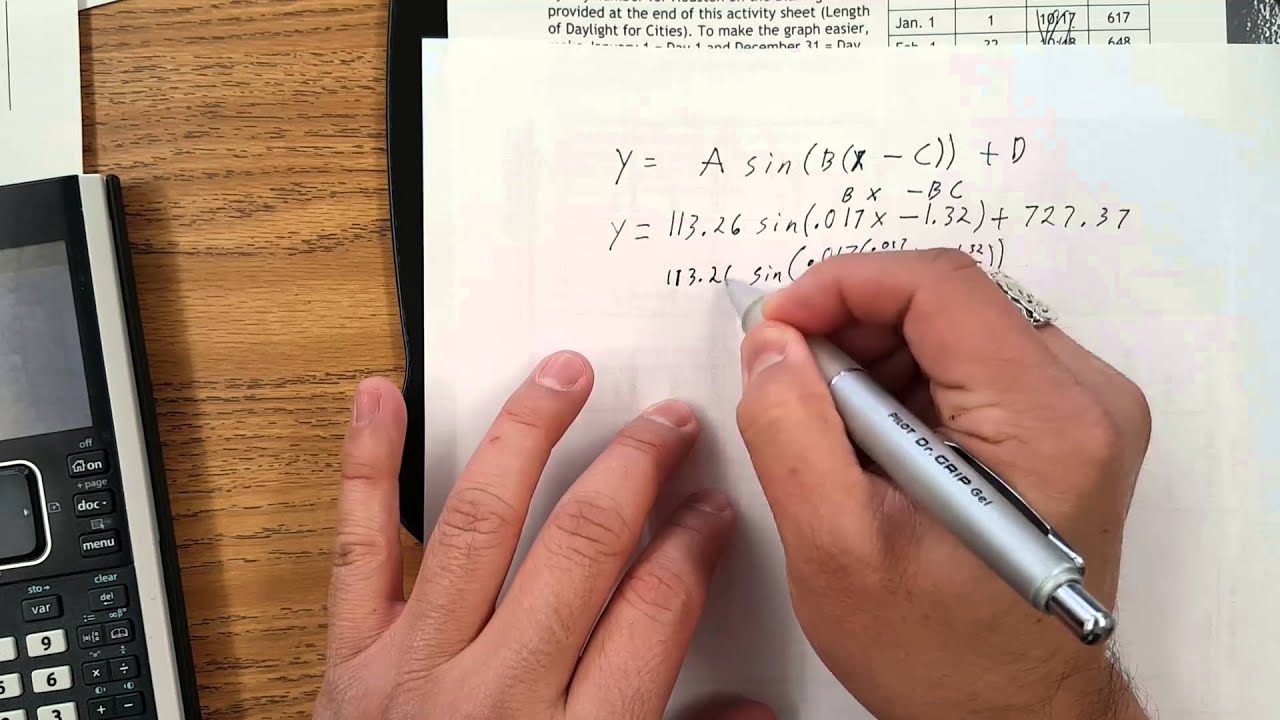 provided at the end of this activity sheet (Length
of Daylight for Cities). To make the graph easier,
Jan. 1 1 10:17 617
Feb. 1 32 10:48 648
y = A sin(B(x - C)) + D
Bx - BC
y = 113.26 sin(.017x - 1.32) + 727.37
113.26 sin(
off
on
+ page
doc
menu
sto→
clear
var
del
9
6
3
×
÷
+
−
PILOT Dr. GRIP Gel